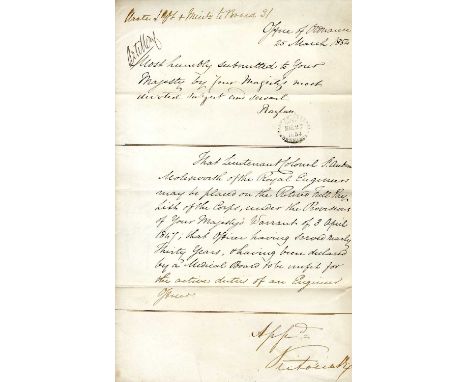 Office of Ordnance
25 March 1854
Artillery
Most humbly submitted to Your
Majesty by Your Majesty's most
devoted Subject and Servant
Raglan
That Lieutenant Colonel
Molesworth of the Royal Engineers
may be placed on the Retired Full Pay
List of the Corps, under the Provisions
of Your Majesty's Warrant of 3 April
1847, that Officer having served nearly
Thirty Years, & having been declared
by a Medical Board to be unfit for
the active duties of an Engineer
Officer
App^d
Victoria R